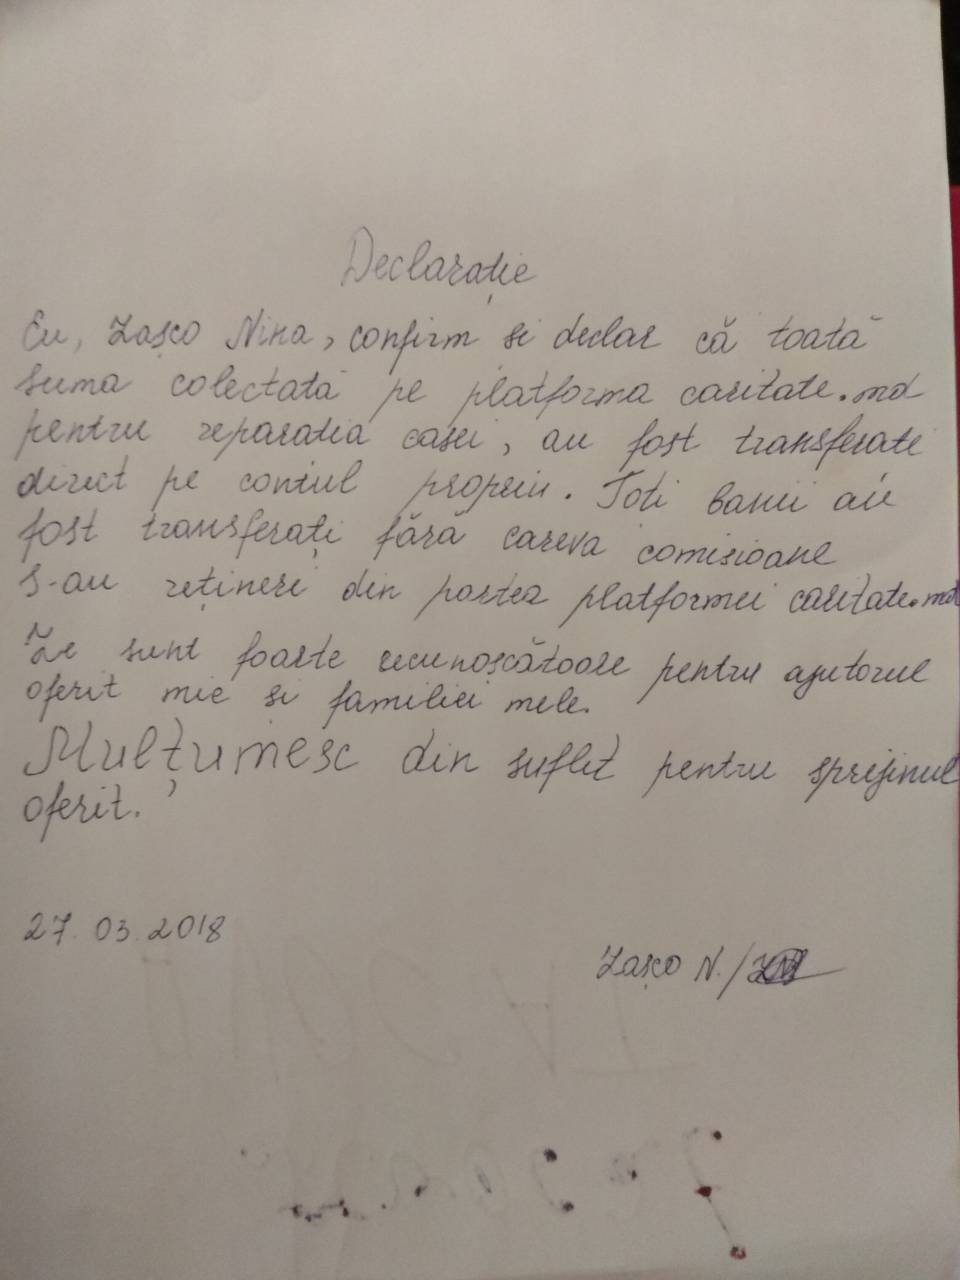 Declarație
Eu, Zașco Nina, confirm si declar că toată
suma colectată pe platforma caritate.md
pentru reparatia casei, au fost transferati
direct pe contul propriu. Toti banii au
fost transferați fără careva comisioane
s-au rețineri din partea platformei caritate.md
Le sunt foarte recunoscătoare pentru ajutorul
oferit mie si familiei mele.
Mulțumesc din suflet pentru sprijinul
oferit.
27.03.2018
Zașco N./